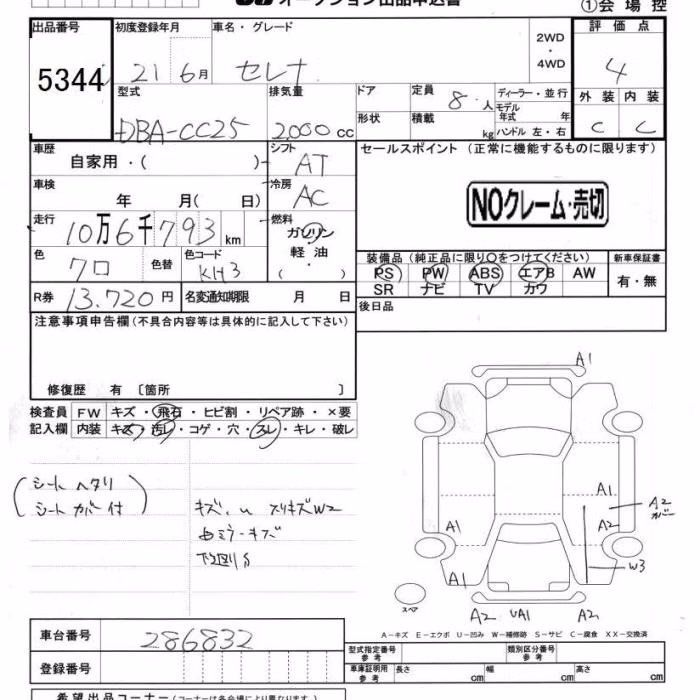 オークション出品申込書
①会場控
出品番号 5344
初度登録年月 21 6月
車名・グレード セレナ
2WD・4WD
評価点 4
外装 C 内装 C
型式 DBA-CC25
排気量 2,000 cc
ドア
形状
定員 8人
積載 kg
ディーラー・並行
モデル年式 年
ハンドル 左・右
車歴 自家用・( )
シフト AT
車検 年 月( 日)
冷房 AC
走行 10万6千793 km
燃料 ガソリン・軽油・( )
色 クロ 色替
色コード KH3
R券 13,720円
名変通知期限 月 日
セールスポイント(正常に機能するものに限ります)
NOクレーム・売切
装備品(純正品に限り○をつけてください)
新車保証書
PS PW ABS エアB AW
有・無
SR ナビ TV カワ
後日品
注意事項申告欄(不具合内容等は具体的に記入して下さい)
修復歴 有〔箇所 〕
検査員 FW キズ・飛石・ヒビ割・リペア跡・×要
記入欄 内装 キズ・汚レ・コゲ・穴・スレ・キレ・破レ
(シートヘタリ
シートカバー付)
キズ、U スリキズW2
ミラーキズ
下廻りS
A1
A1
A2
A2
カバー
A1
W3
A1
スペア
A2 UA1 A2
A-キズ E-エクボ U-凹み W-補修跡 S-サビ C-腐食 XX-交換済
車台番号 286832
登録番号
型式指定番号 参考
類別区分番号 参考
車庫証明用 参考 長さ cm 幅 cm 高さ cm
希望出品コーナー(コーナーは各会場により異なります)